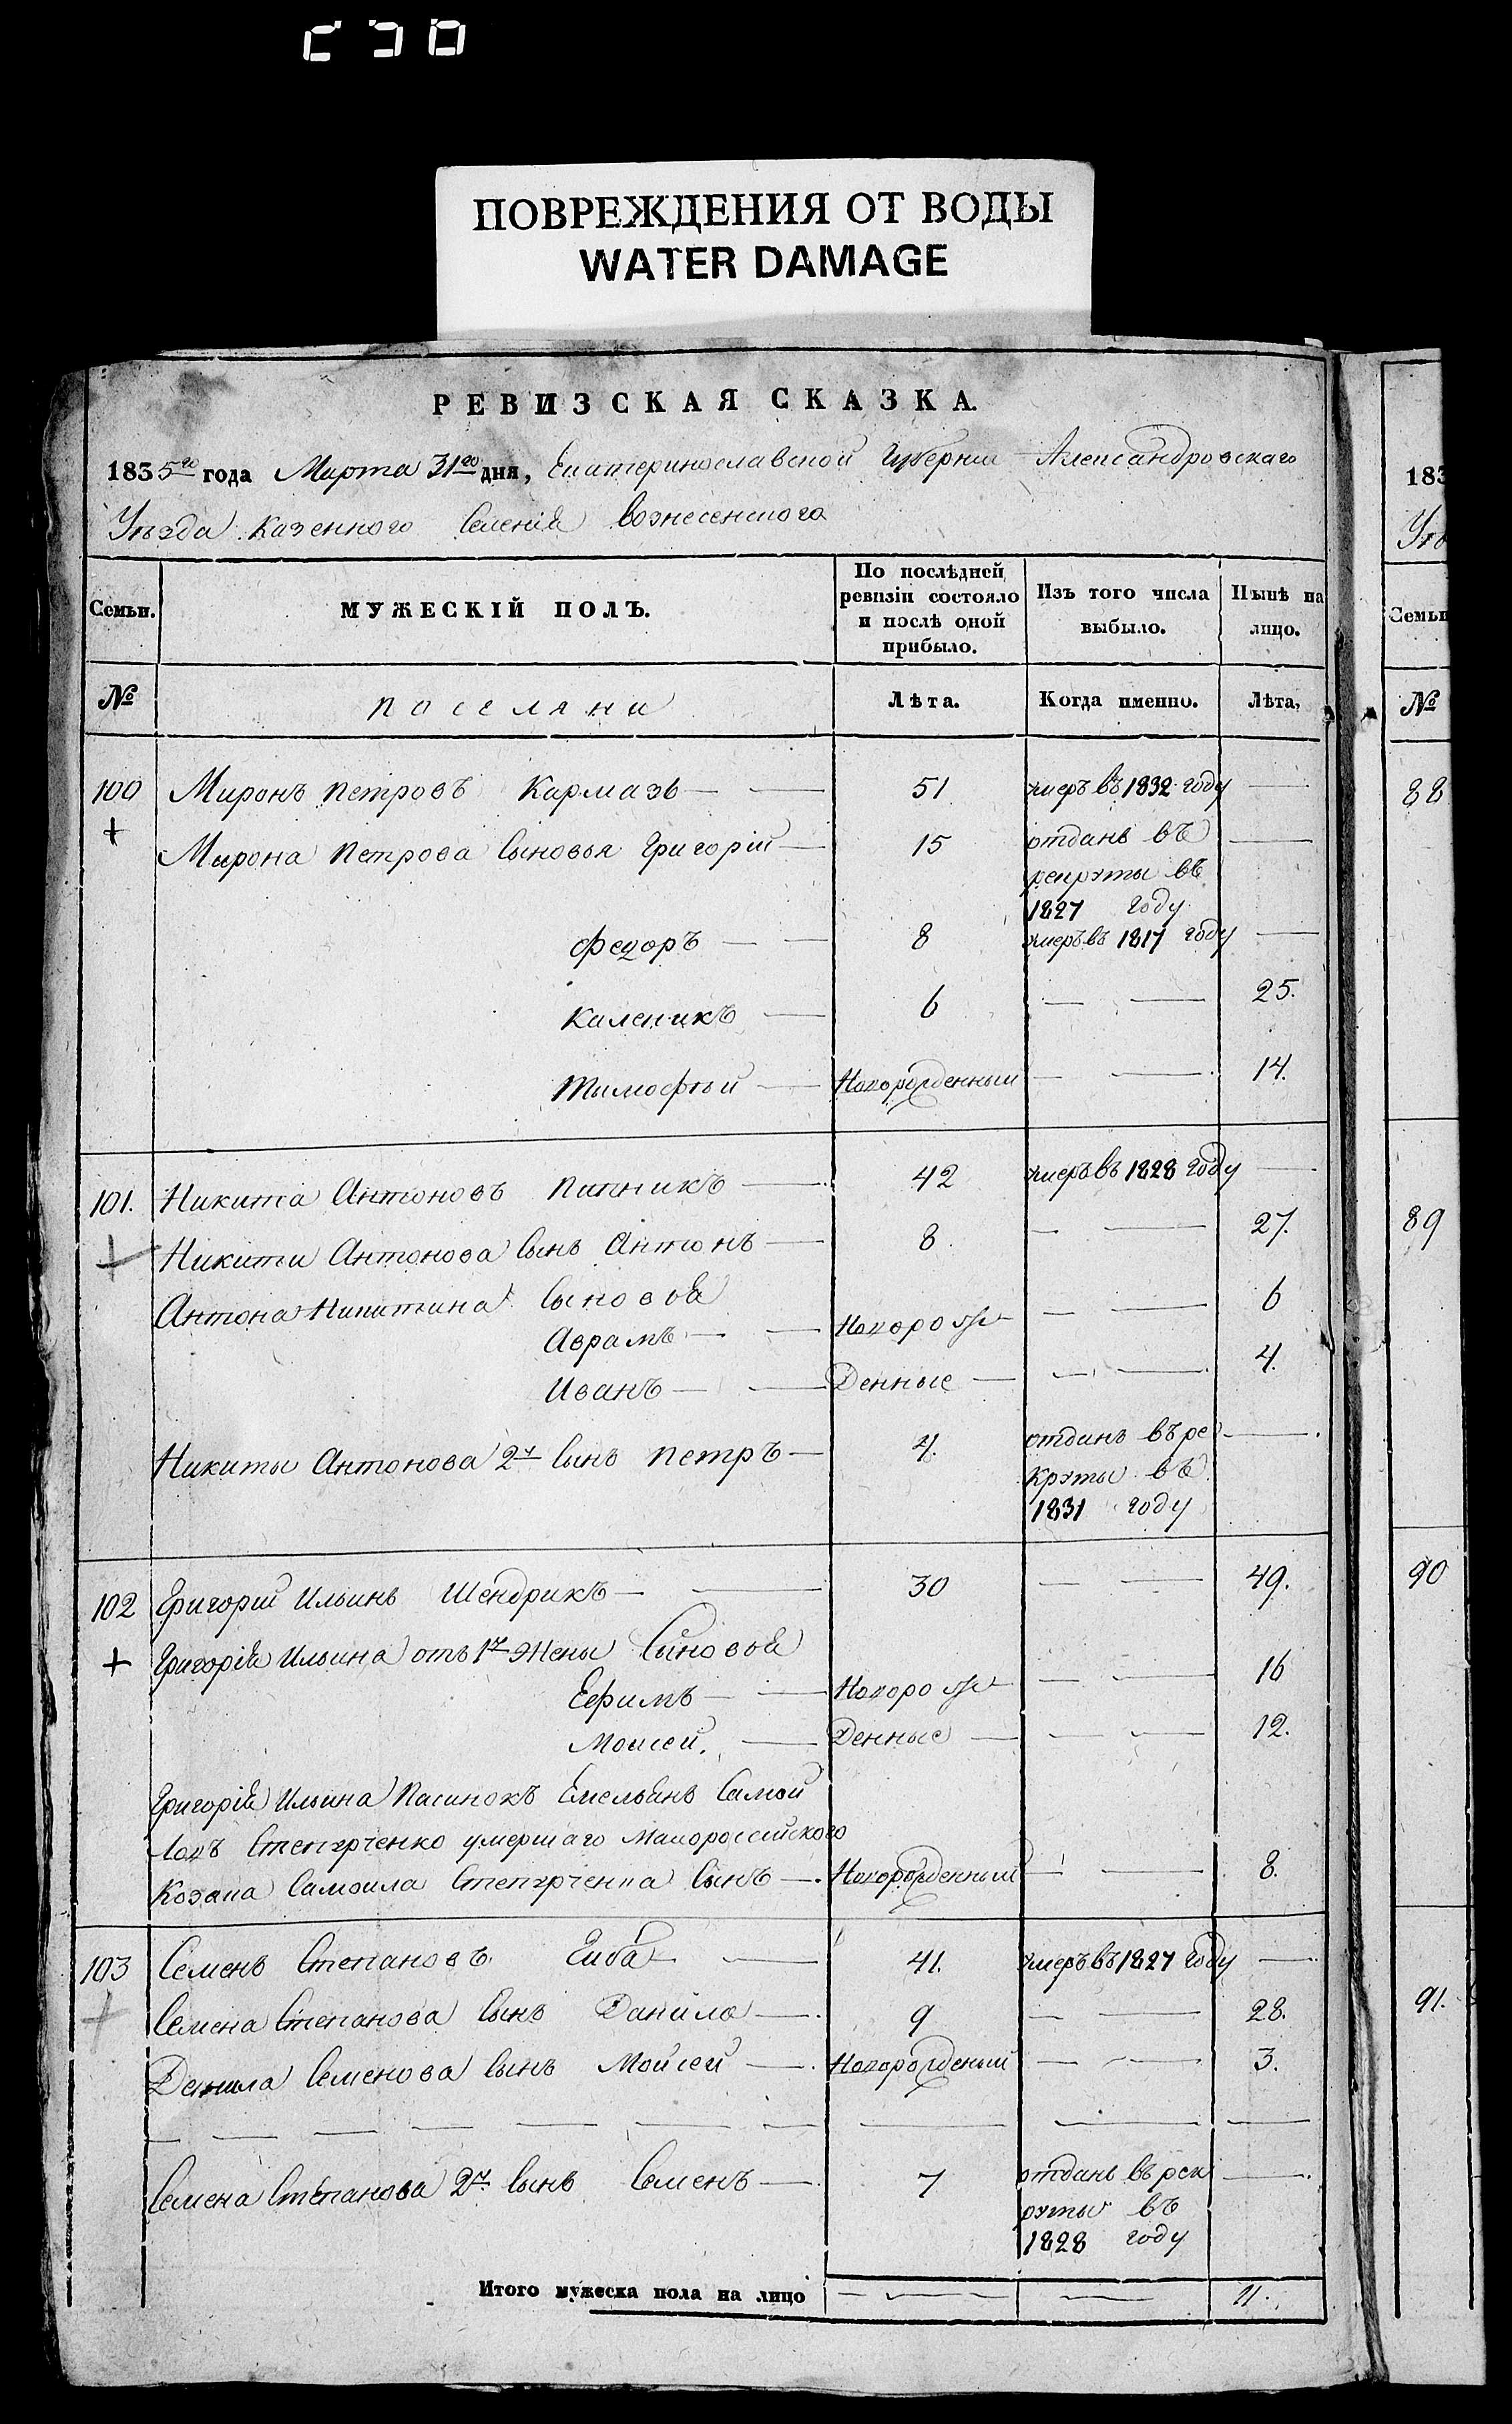 ПОВРЕЖДЕНИЯ ОТ ВОДЫ
WATER DAMAGE
РЕВИЗСКАЯ СКАЗКА.
1835го года Марта 31го дня, Екатеринославской Губернии Александровскаго
Уѣзда Казенного Селенія Вознесенского
Семьи. МУЖЕСКІЙ ПОЛЪ. По послѣдней ревизіи состояло и послѣ оной прибыло. Изъ того числа выбыло. Нынѣ на лицо.
№ поселяни Лѣта. Когда именно. Лѣта,
100 Миронъ Петровъ Кармазь 51 умеръ въ 1832 году
Мирона Петрова Сыновья Григорій 15 отданъ въ
рекруты въ
1827 году
Федоръ 8 умеръ въ 1817 году
Каленикъ 6 25.
Тимофѣй Новорожденный 14.
101. Никита Антоновъ 42 умеръ въ 1828 году
Никити Антонова Сынъ Антонъ 8 27.
Антона Никитина Сыновья
Аврамъ Новорож 6
Иванъ Денные 4.
Никиты Антонова 2й Сынъ Петръ 4. отданъ въ ре
круты въ
1831 году
102 Григорій Ильинъ Шендрикъ 30 49.
Григорія Ильина отъ 1й Жены Сыновья
Ефимъ Новорож 16
Моисей. Денные 12.
Григорія Ильина Пасинокъ Емельянъ Самой
Степурченко умершаго Малороссійского
Козака Самоила Степурченка Сынъ Новорожденный 8.
103 Семенъ Степановъ 41. умеръ въ 1827 году
Семена Степанова Сынъ Данила 9 28.
Данила Семенова Сынъ Мойсей Новорожденый 3.
Семена Степанова 2й Сынъ Семенъ 7 отданъ въ рек
руты въ
1828 году
Итого мужеска пола на лицо 11.
183
Семьи
№
88
89
90
91.